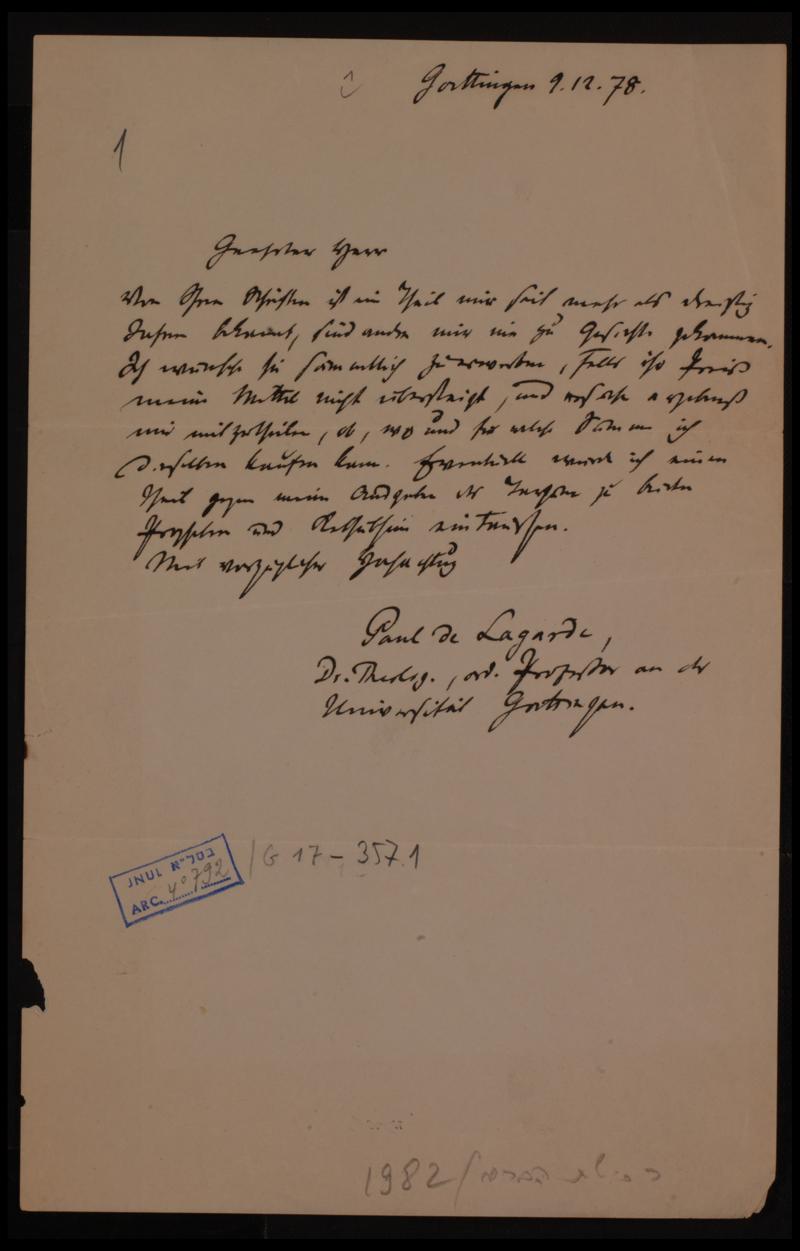 Goettingen 9.12.78.
1
Geehrter Herr
Von Ihren Schriften ist ein Theil mir seit mehr als dreissig
Jahren bekannt, sind andre mir nie zu Gesicht gekommen.
Ich wünsche sie sämmtlich zu erwerben, falls ihr Preis
meine Mittel nicht übersteigt, und ersuche ergebenst
mir mitzutheilen, ob, wo und für welche Summe ich
dieselben kaufen kann. Eventuell würde ich einen
Theil gegen meine Ausgabe der Targume zu beiden
Propheten und Kethubim eintauschen.
Mit vorzüglicher Hochachtung
Paul de Lagarde,
Dr. Theolog., ord. Professor an der
Universität Goettingen.
בסל"א JNUL
ARC. 4° 792
/G 17-357.1
1982/